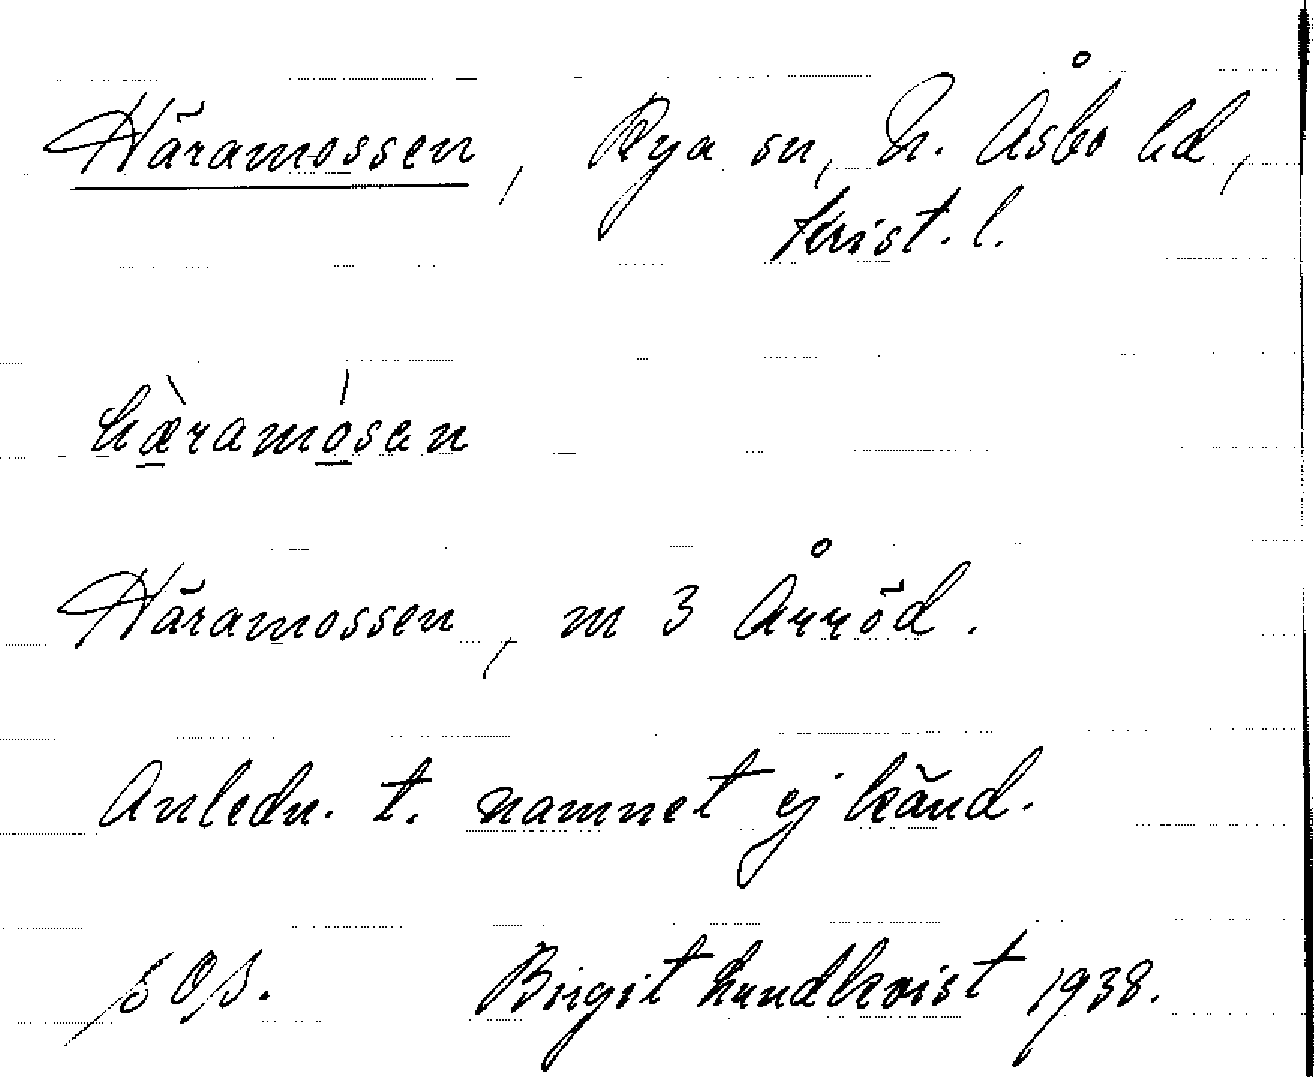 Häramossen, Rya sn, N. Åsbo hd,
Krist. l.
hæ̀ramósen
Häramossen, m 3 Årröd.
Anledn. t. namnet ej känd.
Birgit Lundkvist 1938.